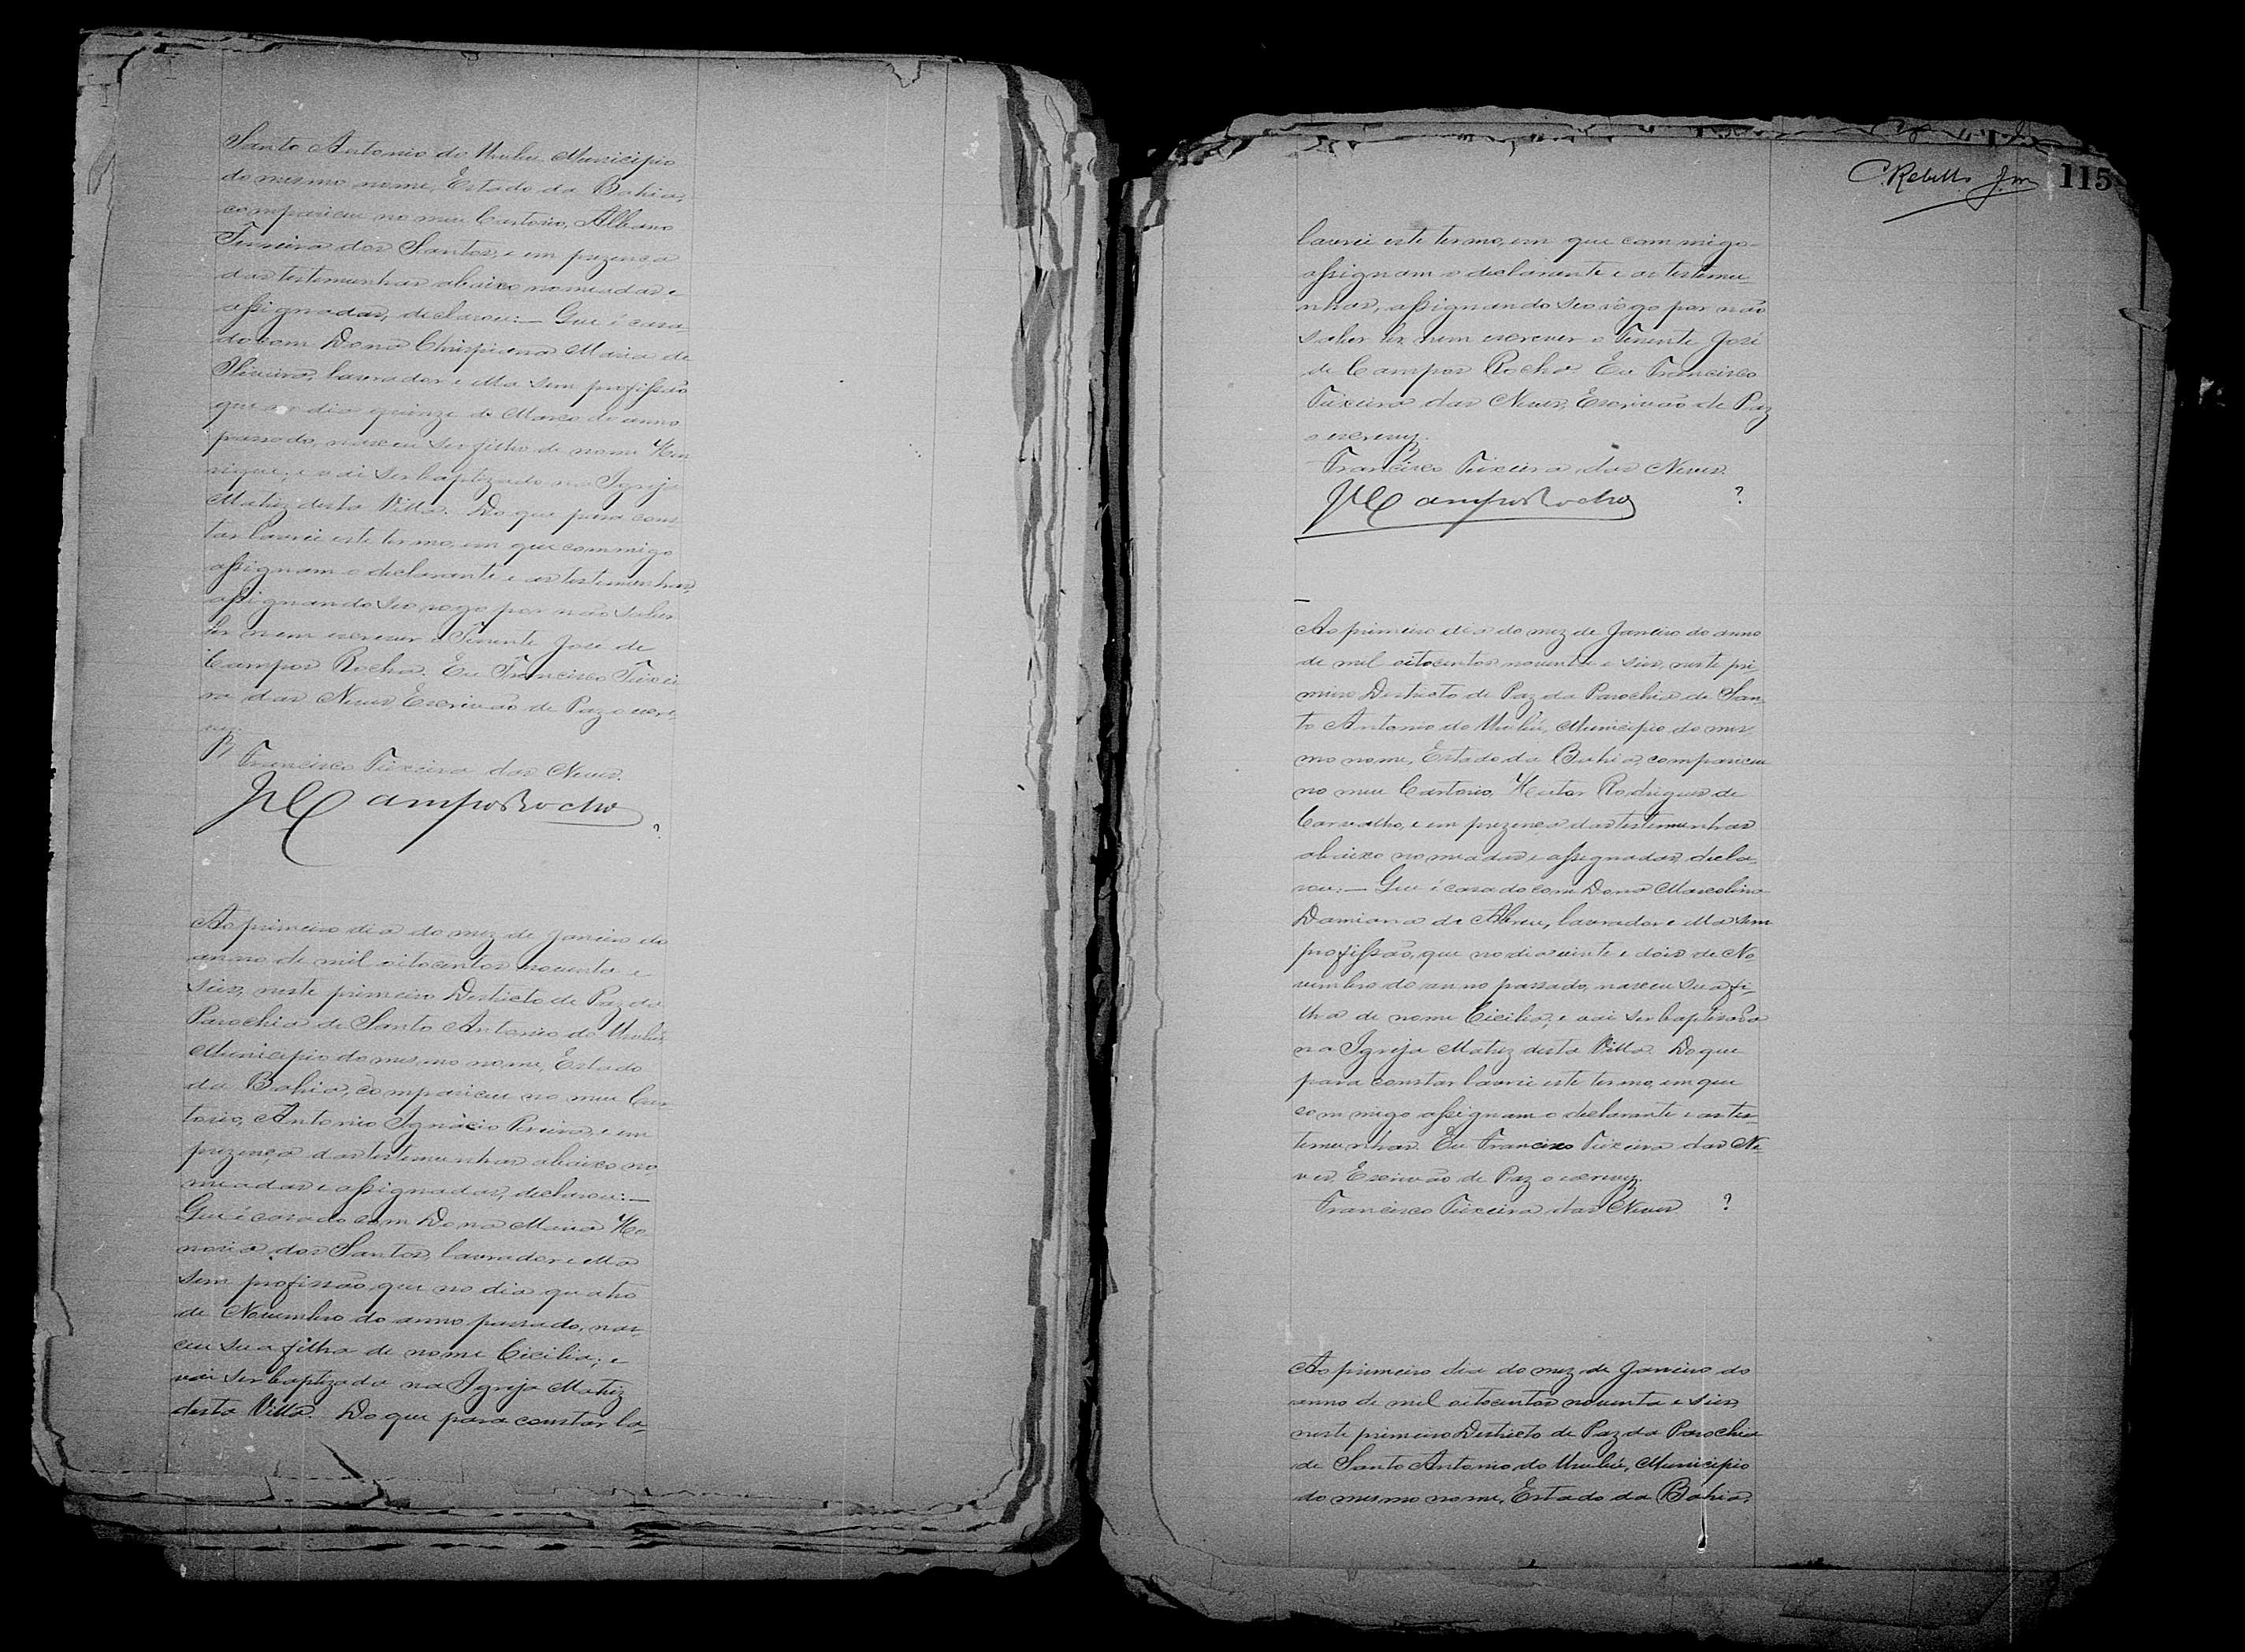 Santo Antonio do Urubú Municipio
do mesmo nome, Estado da Bahia,
compareceu no meu Cartorio, Albano
Ferreira dos Santos, e em prezença
das testemunhas abaixo nomeadas e
assignadas, declarou:— Que é casa
do com Dona Chrispiana Maria de
Oliveira, lavrador e ella sem profissão
que no dia quinze de Março do anno
passado, nasceu seu filho de nome Hen
rique; e vai ser baptizado na Igreja
Matriz desta Villa. Do que para cons
tar lavrei este termo, em que commigo
assignam o declarante e as testemunhas,
assignando seo rogo por não saber
ler nem escrever o Tenente José de
Campos Rocha. Eu Francisco Teixei
ra das Neves Escrivão de Paz o escre
vy.
Francisco Teixeira das Neves.
JCamposRocha
?
Ao primeiro dia do mez de Janeiro do
anno de mil oitocentos noventa e
seis, neste primeiro Destricto de Paz da
Parochia de Santo Antonio do Urubú
Municipio do mesmo nome, Estado
da Bahia, compareceu no meu Car
torio, Antonio Ignacio Pereira, e em
prezença das testemunhas abaixo no
meadas e assignadas, declarou:—
Que é casado com Dona Maria Ho
noria dos Santos, lavrador e ella
sem profissão, que no dia quatro
de Novembro do anno passado, nas-
ceu sua filha de nome Cicilia; e
vai ser baptizada na Igreja Matriz
desta Villa. Do que para constar la-
C. Rebello Jor
115
lavrei este termo, em que commigo
assignam o declarante e as testemu-
nhas, assignando seo rogo por não
saber ler nem escrever o Tenente José
de Campos Rocha. Eu Francisco
Teixeira das Neves, Escrivão de Paz
o escrevy.
Francisco Teixeira das Neves.
JCamposRocha ?
Ao primeiro dia do mez de Janeiro do anno
de mil oitocentos noventa e seis, neste pri
meiro Destricto de Paz da Parochia de San
to Antonio do Urubú, Municipio do mes
mo nome, Estado da Bahia, compareceu
no meu Cartorio, Heitor Rodrigues de
Carvalho, e em prezença das testemunhas
abaixo nomeadas e assignadas, decla-
rou:— Que é casado com Dona Marcolina
Damiana de Abreu, lavrador e ella sem
profissão, que no dia vinte e dois de No
vembro do anno passado, nasceu sua fi-
lha de nome Cicilia; e vai ser baptisada
na Igreja Matriz desta Villa. Do que
para constar lavrei este termo, em que
commigo assignam o declarante e as tes-
temunhas. Eu Francisco Teixeira das Ne
ves, Escrivão de Paz o escrevy.
Francisco Teixeira das Neves. ?
Ao primeiro dia do mez de Janeiro do
anno de mil oitocentos noventa e seis
neste primeiro Destricto de Paz da Parochia
de Santo Antonio do Urubú, Municipio
do mesmo nome, Estado da Bahia,